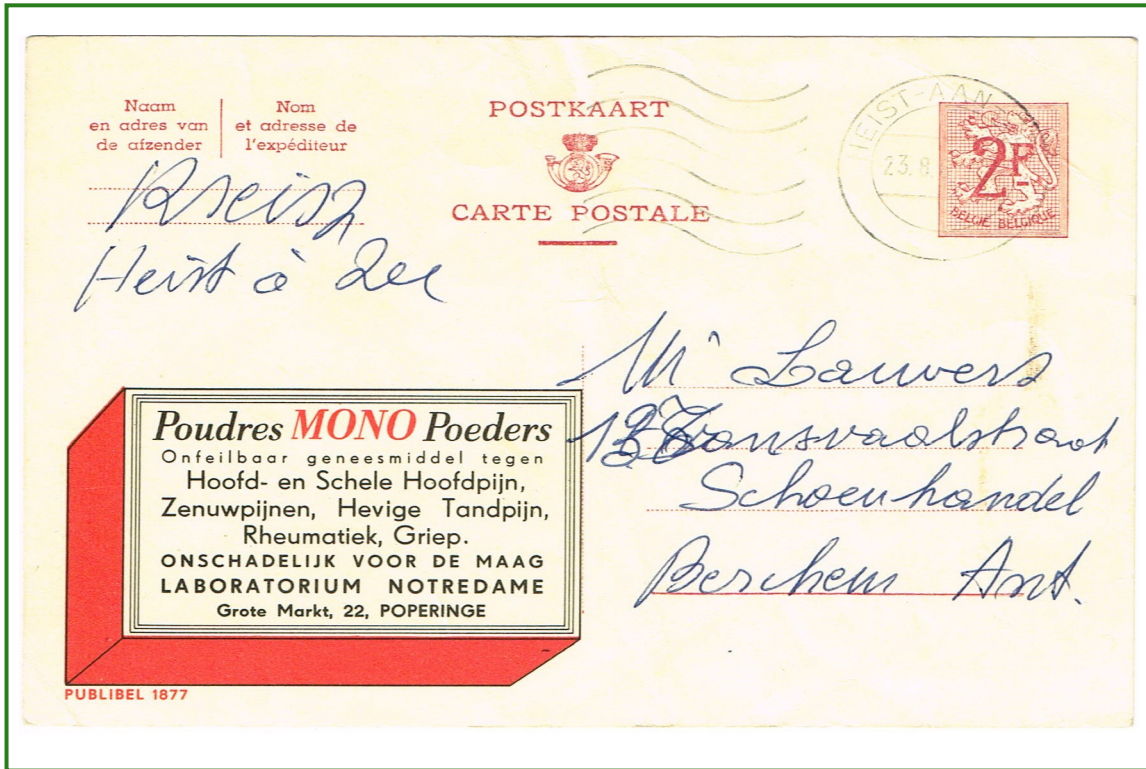 Naam
en adres van
de afzender
Nom
et adresse de
l'expéditeur
POSTKAART
CARTE POSTALE
HEIST-AAN
23.8
2F
BELGIE BELGIQUE
Heist à Zee
Mr Lauwers
Transvaalstraat
Schoenhandel
Berchem Ant.
Poudres MONO Poeders
Onfeilbaar geneesmiddel tegen
Hoofd- en Schele Hoofdpijn,
Zenuwpijnen, Hevige Tandpijn,
Rheumatiek, Griep.
ONSCHADELIJK VOOR DE MAAG
LABORATORIUM NOTREDAME
Grote Markt, 22, POPERINGE
PUBLIBEL 1877